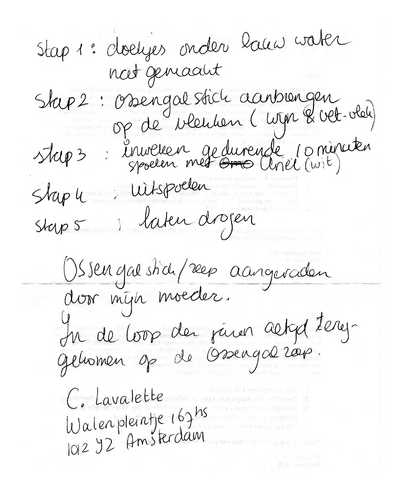 Stap 1: doekjes onder lauw water
nat gemaakt
Stap 2: ossengalstick aanbrengen
op de vlekken (wijn & vet-vlek)
stap 3: inweken gedurende 10 minuten
spoelen met Omo Ariel (wit)
Stap 4. uitspoelen
Stap 5: laten drogen
Ossengalstick/zeep aangeraden
door mijn moeder.
In de loop der jaren altijd terug-
gekomen op de Ossengalzeep.
C. Lavalette
Walenpleintje 167hs
1012 JZ Amsterdam